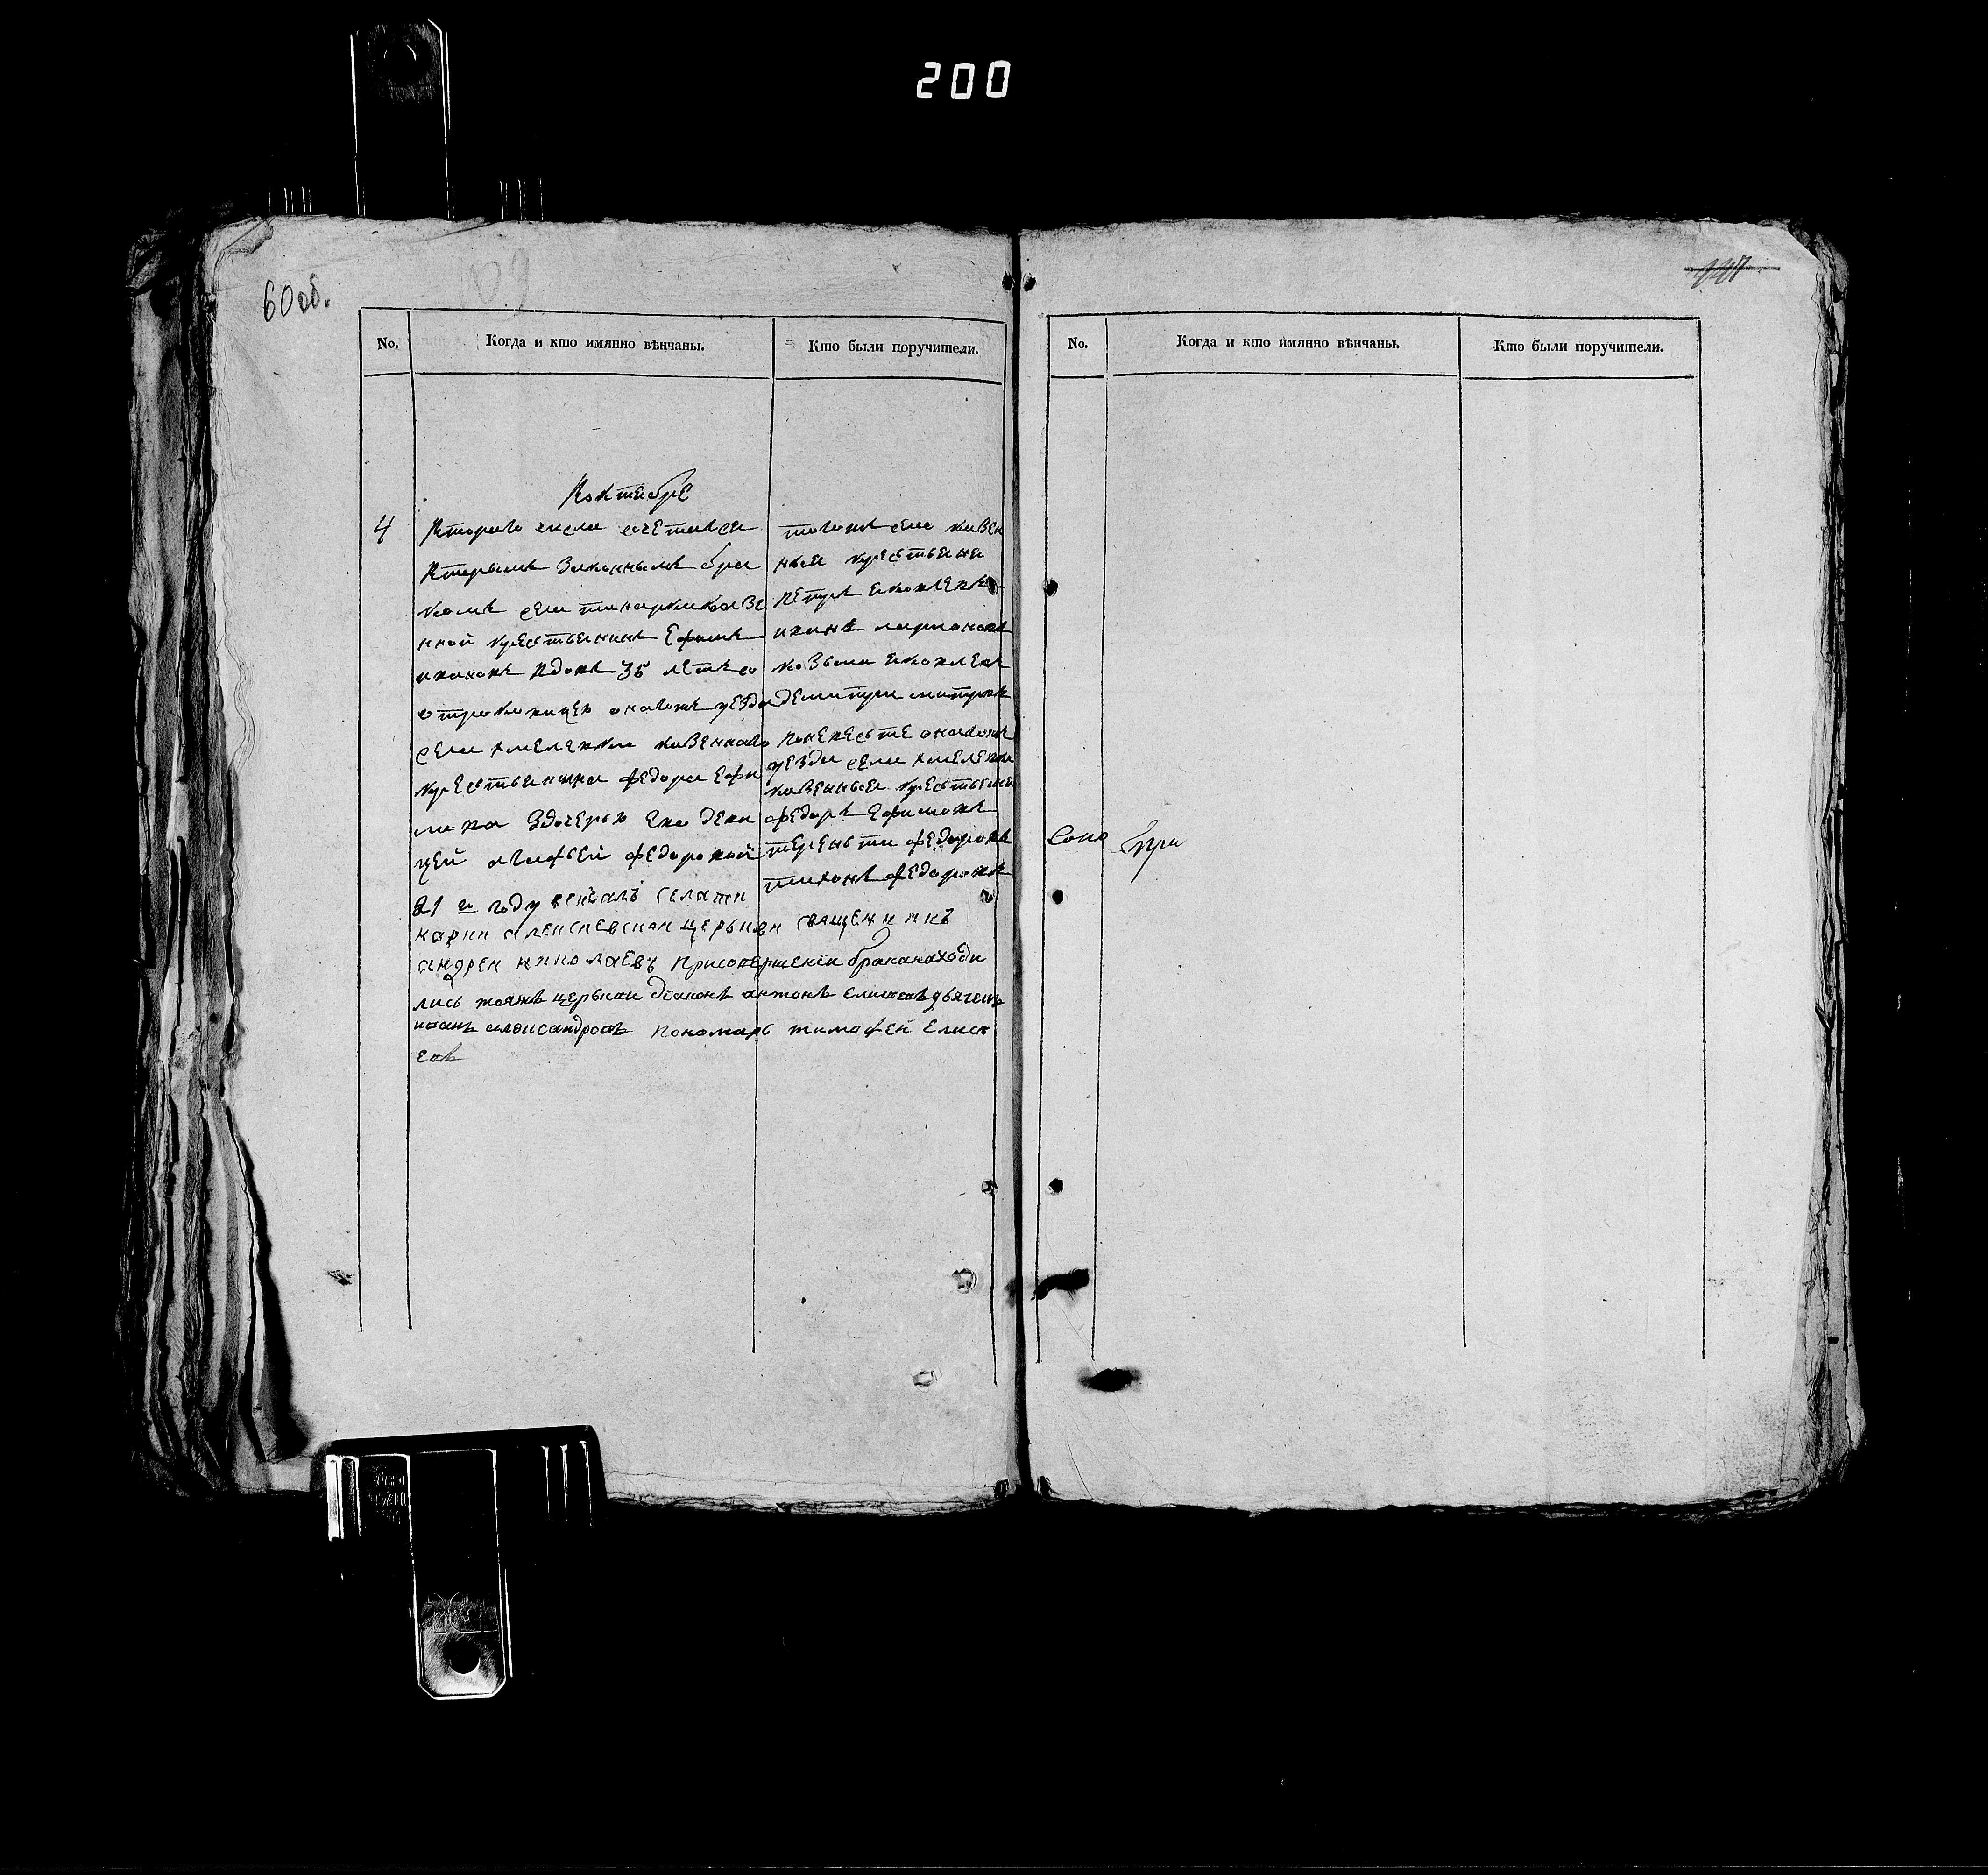 200
60 об.
109
No.
Когда и кто имянно вѣнчаны.
Кто были поручители.
Воктебре
4
Втораго числа сочетался
Вторымъ Законнымъ бра
комъ села тинарки казе
нной крестьянинъ Ефимъ
ивановъ вдовъ 35 летъ со
отроковицею онагожъ уезда
села хмелевки казеннаго
крестьянина федора Ефи
мова Здочерью Ево деви
цей агафьей федоровой
21 го году венчалъ села ти
нарки алексиевскои церькви священникъ
андреи николаевъ Присовершении брака находи
лись тояжъ церькви дiаконъ антонъ Елисеевъ дьячекъ
иванъ александровъ пономарь тимофей Елисе
евъ
тогожъ села казен
ныя крестьяне
петръ яковлевъ
иванъ ларионовъ
козьма яковлевъ
Поневесте онагожъ
уезда села хмелевки
казенныя крестьяне
федоръ Ефимовъ
терентий федоровъ
тихонъ федоровъ
No.
Когда и кто имянно вѣнчаны.
Кто были поручители.